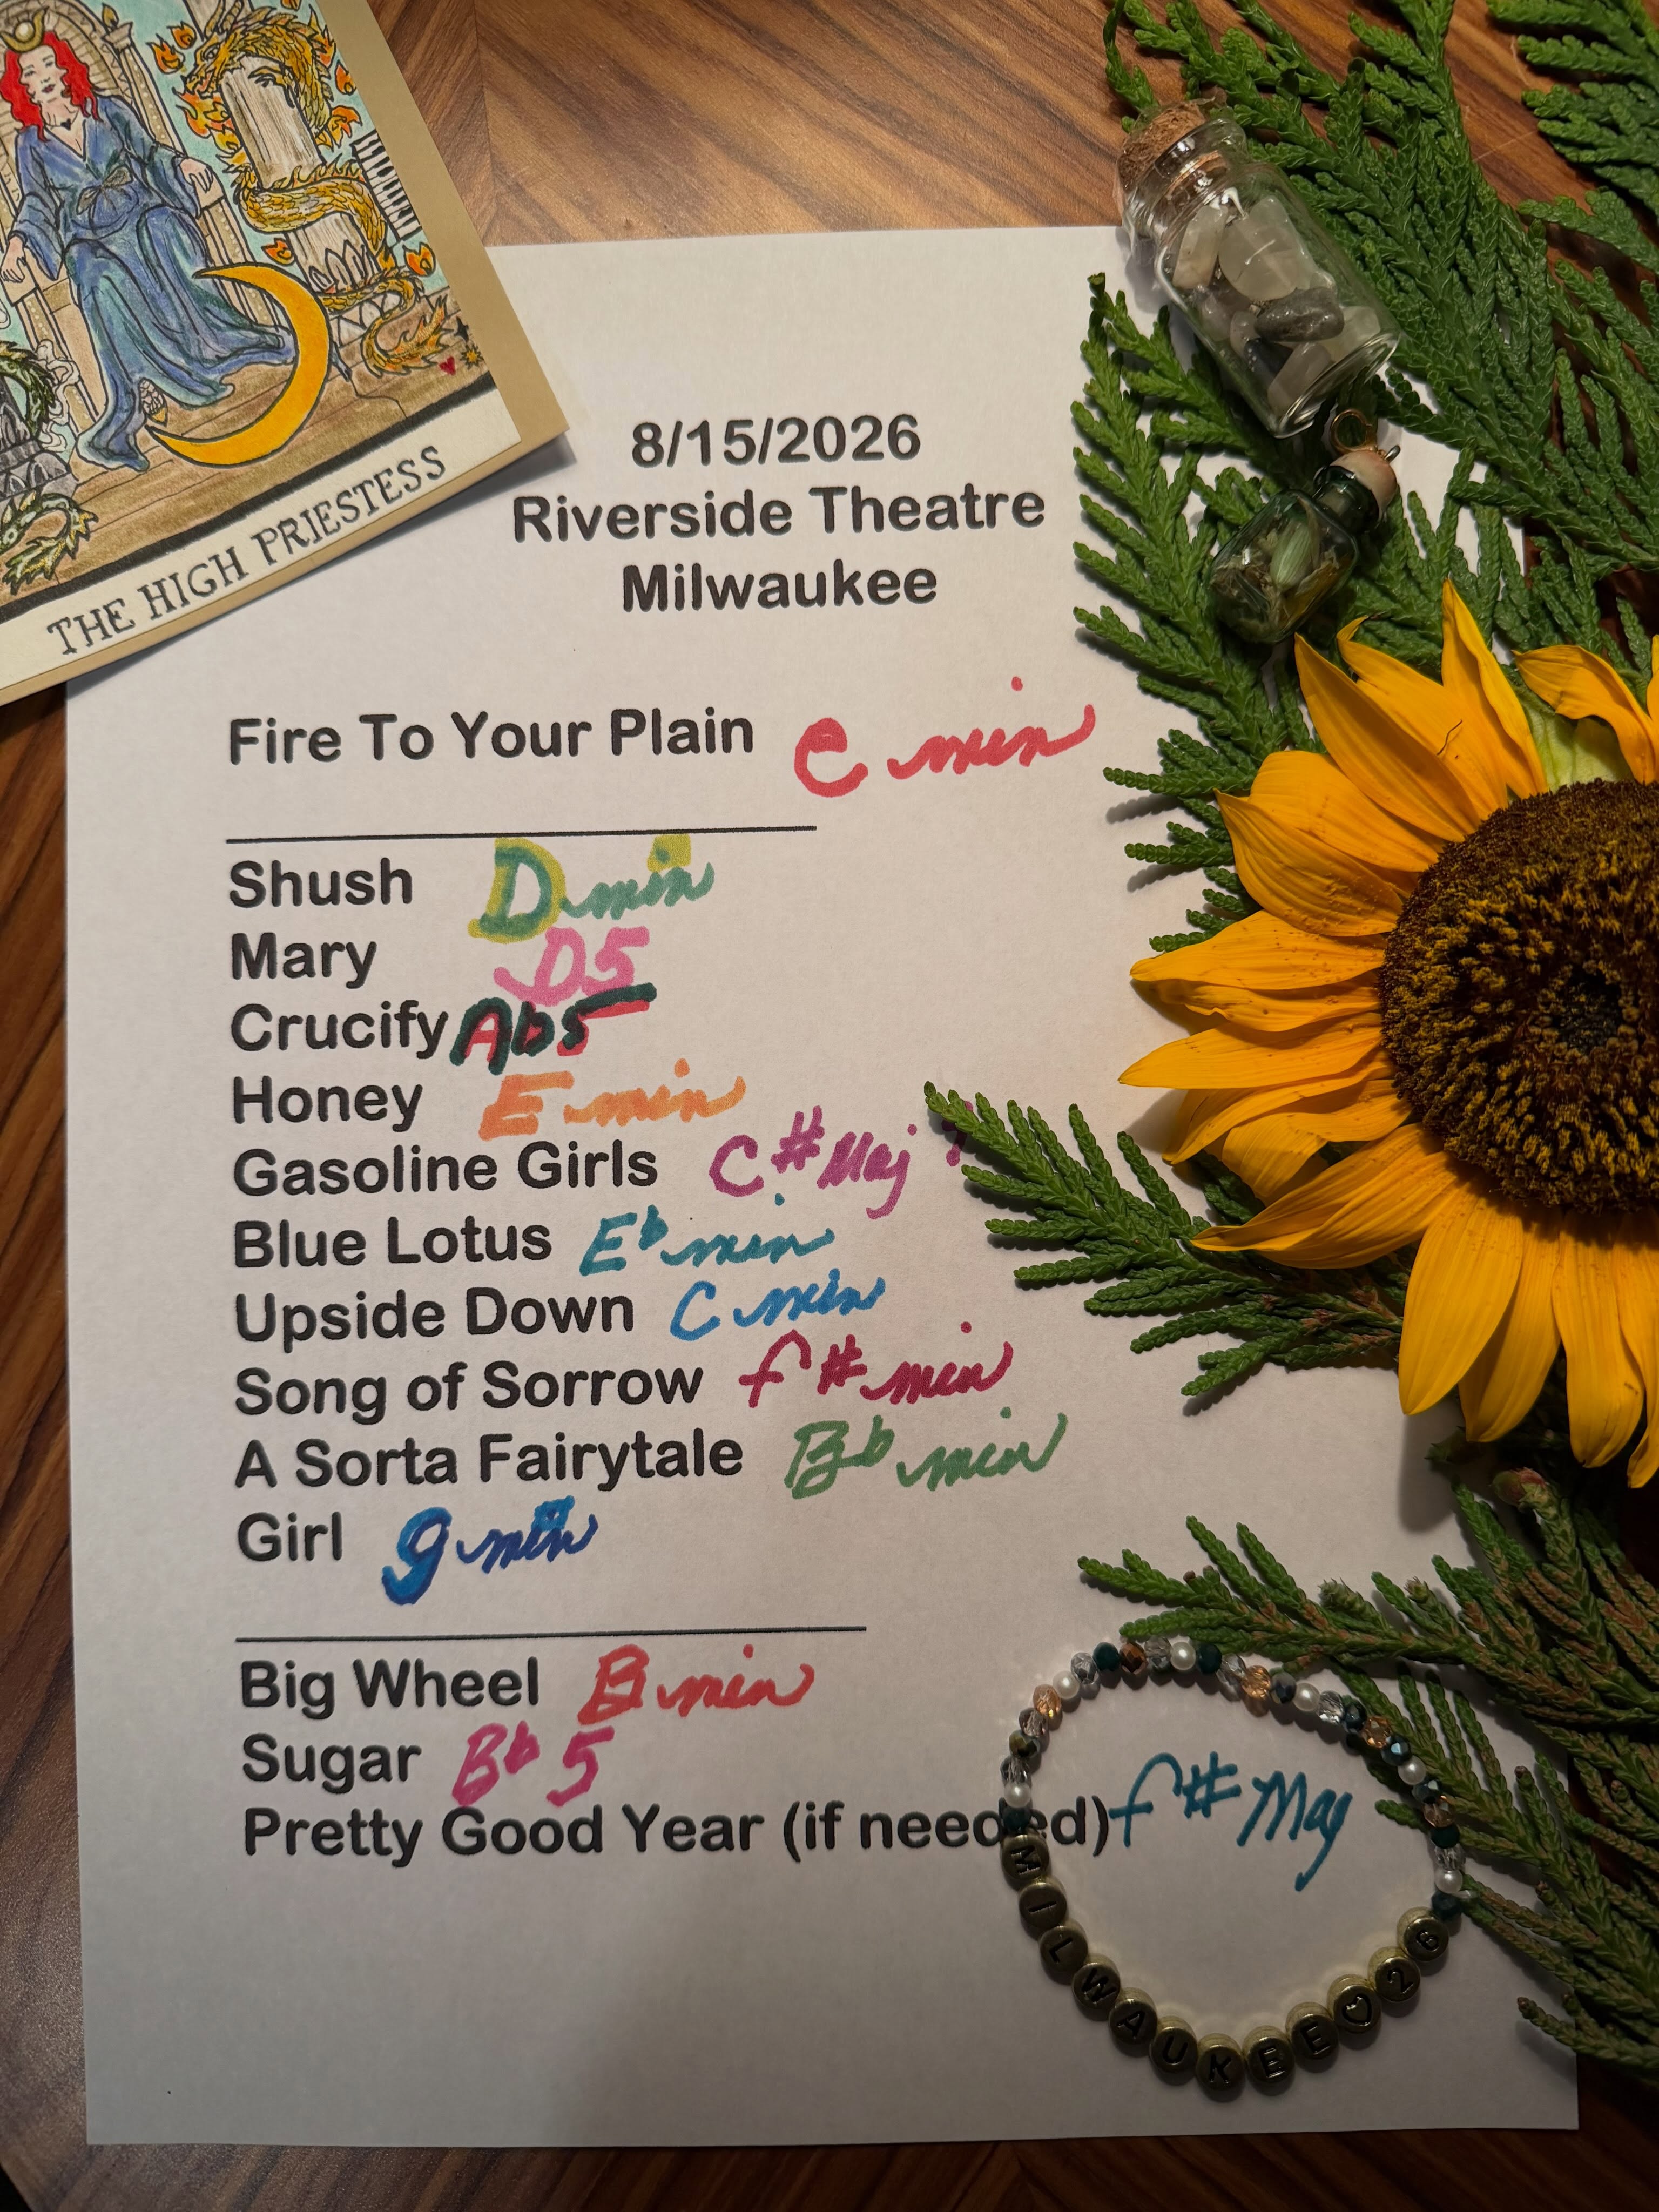 THE HIGH PRIESTESS
8/15/2026
Riverside Theatre
Milwaukee
Fire To Your Plain e min
Shush D min
Mary D5
Crucify Ab5
Honey E min
Gasoline Girls C# Maj 7
Blue Lotus Eb min
Upside Down C min
Song of Sorrow f# min
A Sorta Fairytale Bb min
Girl g min
Big Wheel B min
Sugar Bb 5
Pretty Good Year (if needed) f# Maj
MILWAUKEE♡26